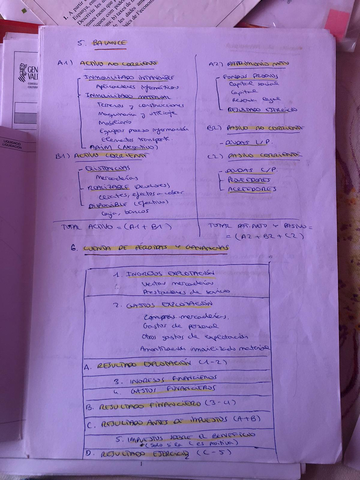 5. BALANCE
A1) ACTIVO NO CORRIENTE
INMOVILIZADO INTANGIBLE
Aplicaciones informáticas
INMOVILIZADO MATERIAL
Terrenos y construcciones
Maquinaria y utillaje
Mobiliario
Equipos proceso información
Elementos transporte
AAIM (negativo)
B1) ACTIVO CORRIENTE
EXISTENCIAS
Mercaderías
REALIZABLE
clientes, efectos a cobrar
DISPONIBLE (efectivo)
Caja, bancos
TOTAL ACTIVO = (A1 + B1)
A2) PATRIMONIO NETO
FONDOS PROPIOS
Capital social
Capital
Reserva legal
RESULTADO EJERCICIO
B2) PASIVO NO CORRIENTE
- DEUDAS L/P
C2) PASIVO CORRIENTE
- DEUDAS C/P
- PROVEEDORES
- ACREEDORES
TOTAL PAT. NETO + PASIVO =
= (A2 + B2 + C2)
6. CUENTA DE PÉRDIDAS Y GANANCIAS
1. INGRESOS EXPLOTACIÓN
Ventas mercaderías
Prestaciones de servicio
2. GASTOS EXPLOTACIÓN
Compras mercaderías
Gastos de personal
Otros gastos de explotación
Amortización inmovilizado material
A. RESULTADO EXPLOTACIÓN (1-2)
3. INGRESOS FINANCIEROS
4. GASTOS FINANCIEROS
B. RESULTADO FINANCIERO (3-4)
C. RESULTADO ANTES DE IMPUESTOS (A+B)
5. IMPUESTOS SOBRE EL BENEFICIO
(Solo si C es positivo)
D. RESULTADO EJERCICIO (C-5)